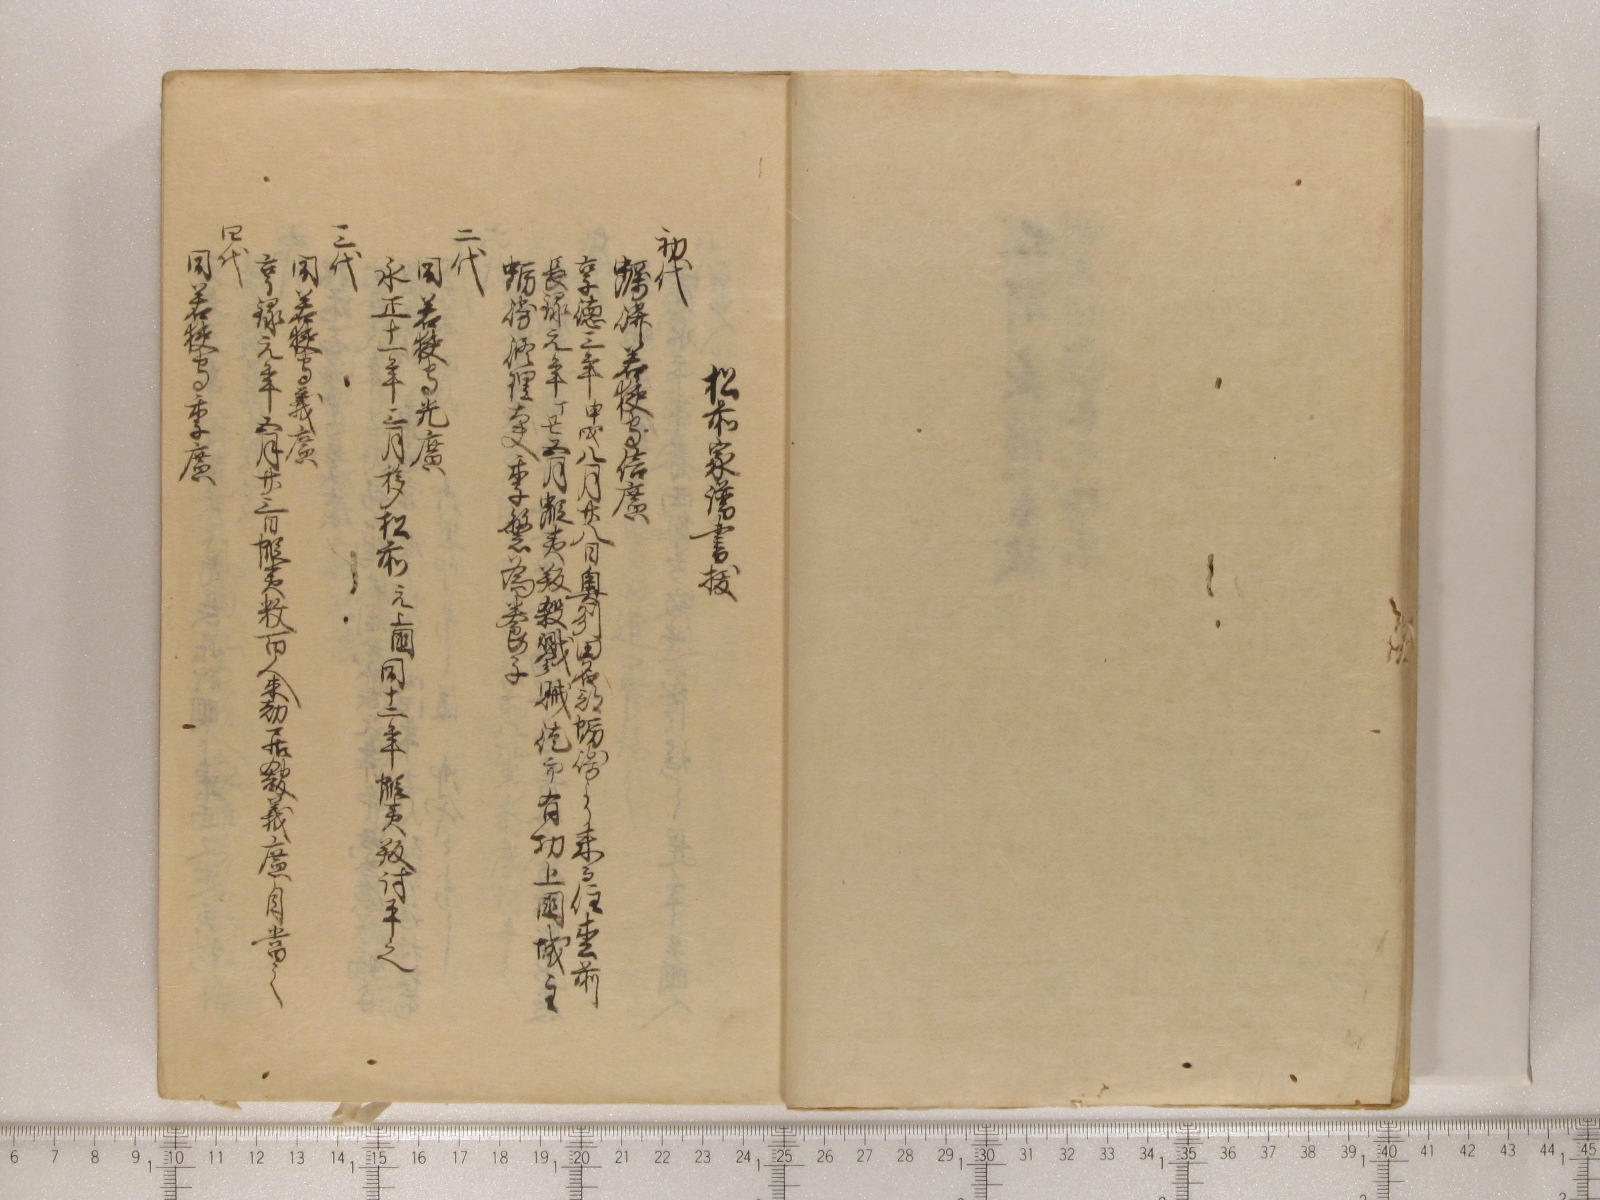 松前家譜書抜
初代
蠣崎若狭守信廣
享徳三年甲戌八月廿八日奥州田名部蛎崎ゟ来而住松前
長禄元年丁丑五月蝦夷叛殺戮賊徒而有功上國城主
蛎崎修理大夫季繁為養子
二代
同若狭守光廣
永正十一年三月移松前元上國同十二年蝦夷叛討平之
三代
同若狭守義廣
享禄元年五月廿三日蝦夷数百人来劫居舘義廣自當之
四代
同若狭守季廣
6 7 8 9 10 11 12 13 14 15 16 17 18 19 20 21 22 23 24 25 26 27 28 29 30 31 32 33 34 35 36 37 38 39 40 41 42 43 44 45